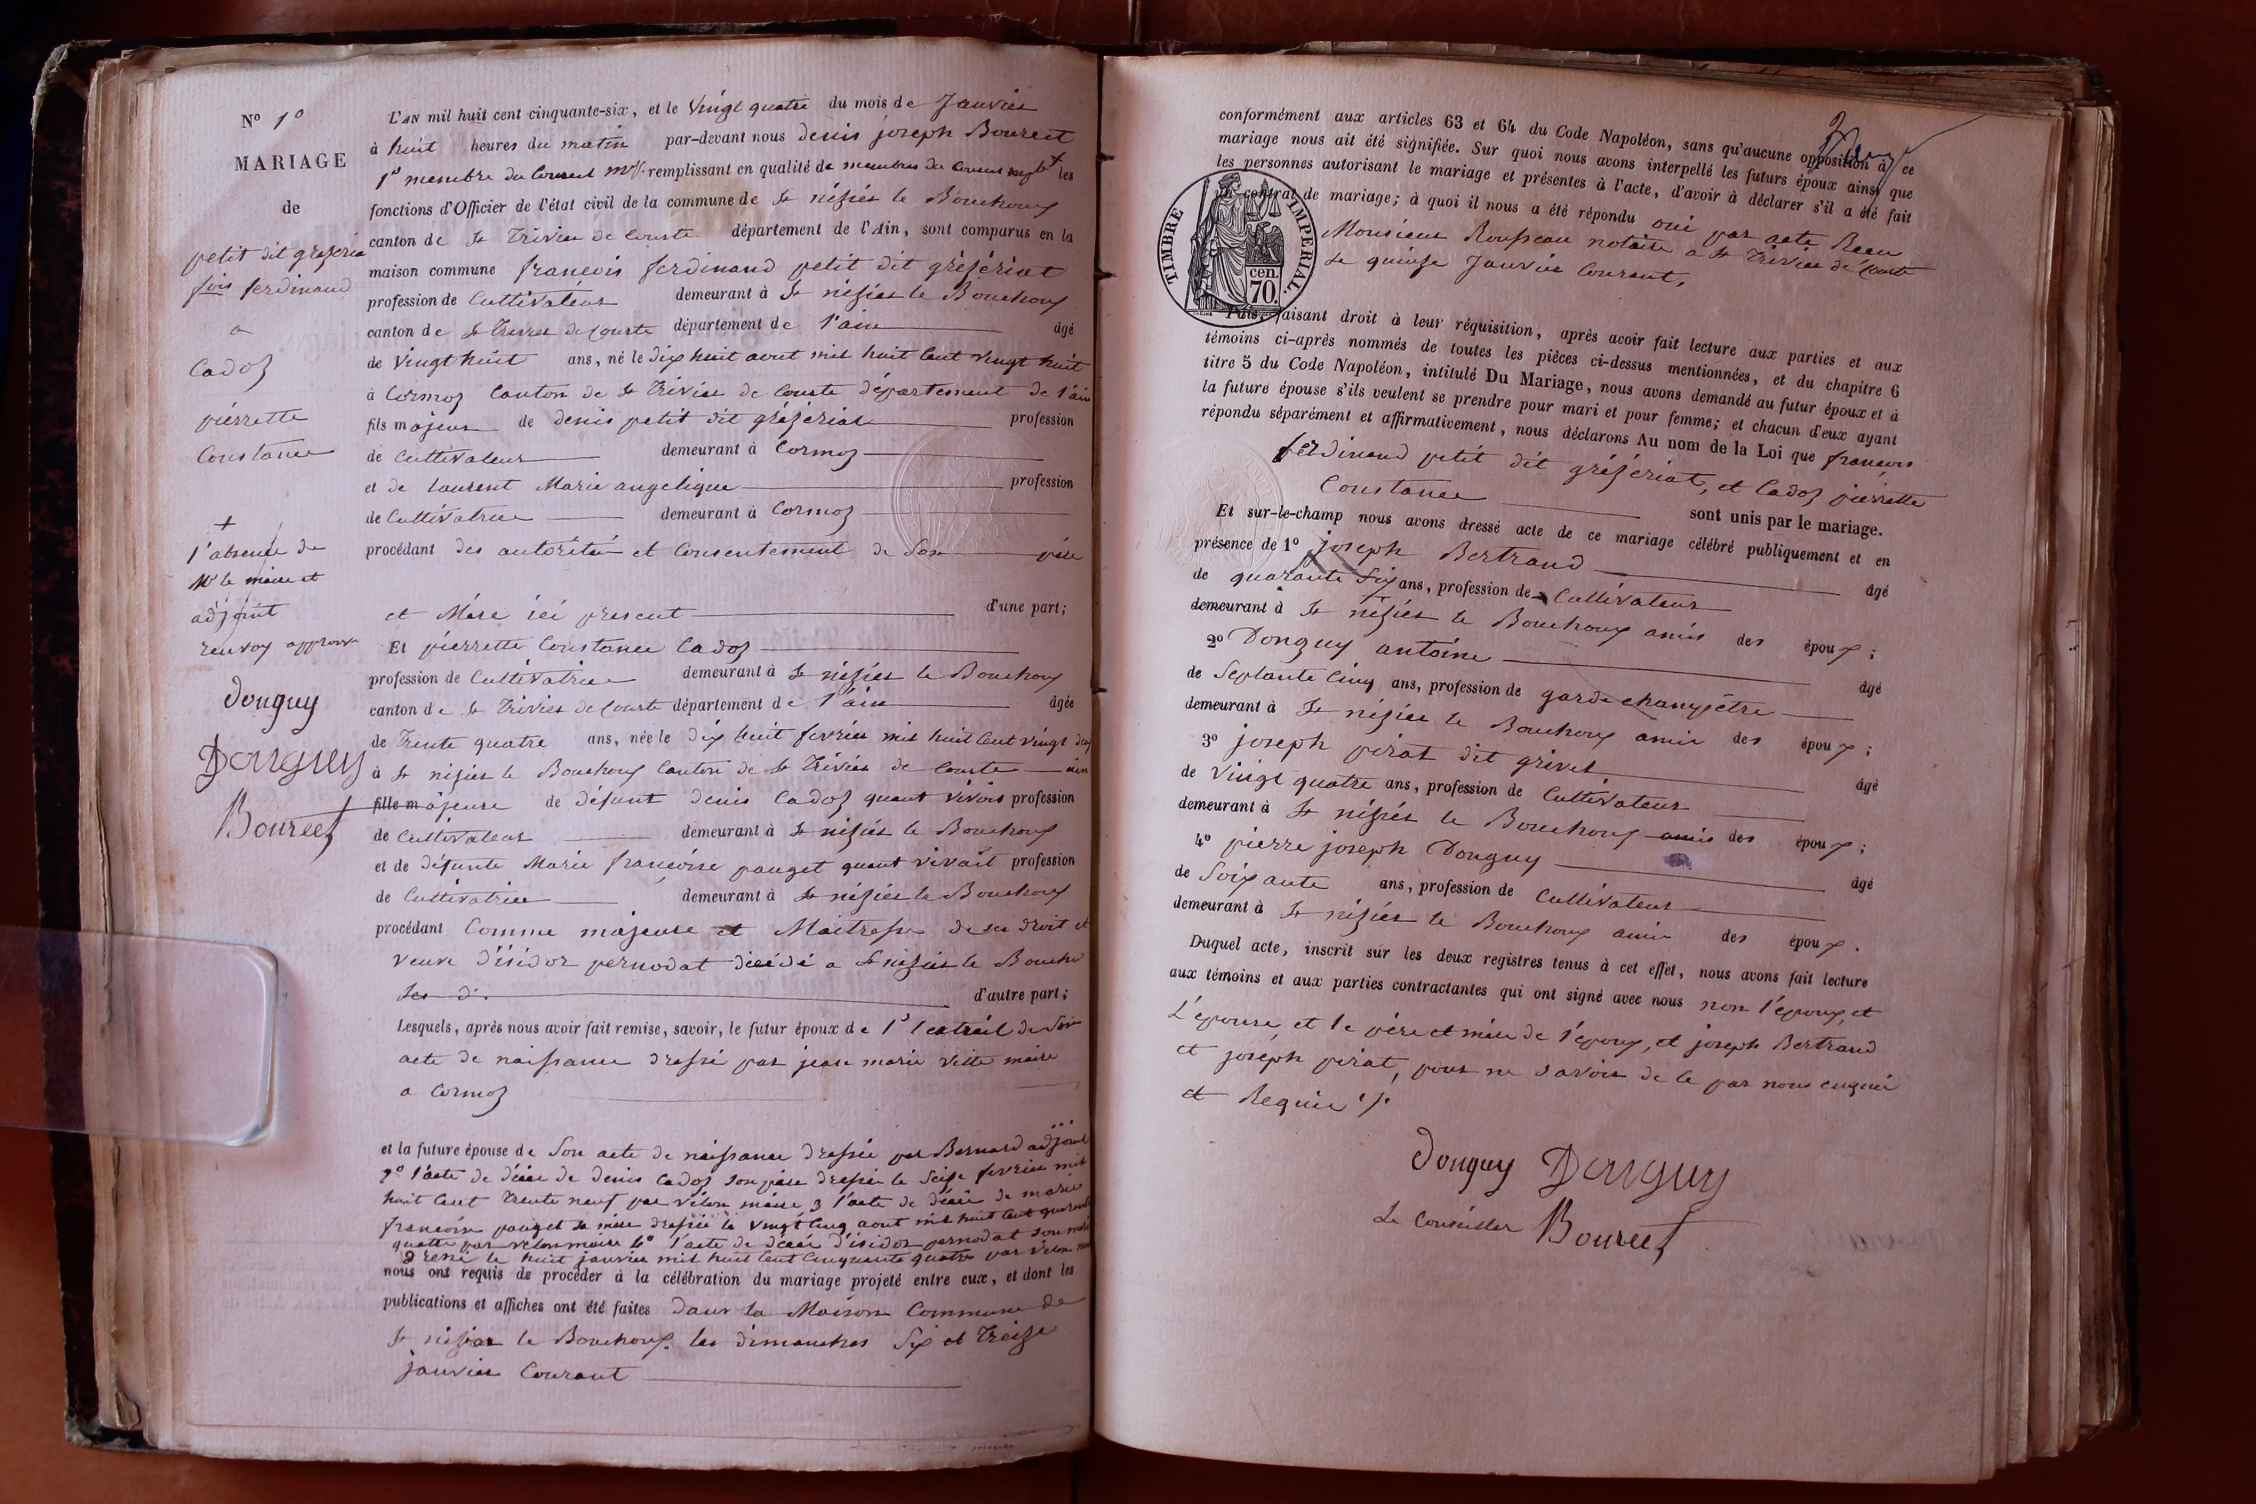 N° 1°
MARIAGE
de
petit dit grézériat
fois ferdinand
a
Cadoz
pierrette
Constance
+
l'absence de
Mr le maire et
adjoint
renvoy approuvé
Donguy
Donguy
Bourcet
L'AN mil huit cent cinquante-six, et le Vingt quatre du mois de Janvier
à huit heures du matin par-devant nous denis joseph Bourcet
1° membre du Conseil remplissant en qualité de membre du Conseil + les
fonctions d'Officier de l'état civil de la commune de St nizier le Bouchoux
canton de St Trivier de Courte département de l'Ain, sont comparus en la
maison commune francois ferdinand petit dit grézériat
profession de Cultivateur demeurant à St nizier le Bouchoux
canton de St Trivier de Courte département de l'ain âgé
de Vingt huit ans, né le dix huit aout mil huit Cent Vingt huit
à Cormoz Canton de St Trivier de Courte département de l'ain
fils majeur de denis petit dit grézériat profession
de Cultivateur demeurant à Cormoz
et de Laurent Marie angelique profession
de Cultivatrice demeurant à Cormoz
procédant des autorité et Consentement de Son père
et Mère ici present d'une part;
Et pierrette Constance Cadoz
profession de Cultivatrice demeurant à St nizier le Bouchoux
canton de St Trivier de Courte département de l'ain âgée
de Trente quatre ans, née le dix huit fevrier mil huit Cent vingt deux
à St nizier le Bouchoux Canton de St Trivier de Courte ain
fille majeure de défunt denis Cadoz quant vivois profession
de Cultivateur demeurant à St nizier le Bouchoux
et de défunte Marie françoise pauget quant vivait profession
de Cultivatrice demeurant à St nizier le Bouchoux
procédant Comme majeure et Maitresse de ses droit et
veuve d'isidor pernodat décédé a St nizier le Boucho
d'autre part;
Lesquels, après nous avoir fait remise, savoir, le futur époux de 1° l'extrait de Son
acte de naissance dressé par jean marie Vette maire
a Cormoz
et la future épouse de Son acte de naissance dressé par Bernard adjoint
2° l'acte de décée de denis Cadoz son père dressée le Seize fevrier mil
huit Cent Trente neuf par Velon maire 3 l'acte de décée de marie
françoise pauget sa mère dressée le vingt Cinq aout mil huit Cent quarante
quatre par velon maire 4° l'acte de décée d'isidor pernodat son mari
dressé le huit janvier mil huit Cent Cinquante quatre par Velon
nous ont requis de procéder à la célébration du mariage projeté entre eux, et dont les
publications et affiches ont été faites dans la Maison Commune de
St nizier le Bouchoux les dimanches Six et Treize
janvier Courant
conformément aux articles 63 et 64 du Code Napoléon, sans qu'aucune opposition à ce
mariage nous ait été signifiée. Sur quoi nous avons interpellé les futurs époux ainsi que
les personnes autorisant le mariage et présentes à l'acte, d'avoir à déclarer s'il a été fait
un contrat de mariage; à quoi il nous a été répondu oui par acte Recu
Monsieur Rousseau notaire a St Trivier de Courte
Le quinze Janvier Courant,
TIMBRE IMPERIAL.
cen.
70.
Puis, faisant droit à leur réquisition, après avoir fait lecture aux parties et aux
témoins ci-après nommés de toutes les pièces ci-dessus mentionnées, et du chapitre 6
titre 5 du Code Napoléon, intitulé Du Mariage, nous avons demandé au futur époux et à
la future épouse s'ils veulent se prendre pour mari et pour femme; et chacun d'eux ayant
répondu séparément et affirmativement, nous déclarons Au nom de la Loi que francois
ferdinand petit dit grézériat, et Cadoz pierrette
Constance sont unis par le mariage.
Et sur-le-champ nous avons dressé acte de ce mariage célébré publiquement et en
présence de 1° joseph Bertrand âgé
de quarante Six ans, profession de Cultivateur
demeurant à St nizier le Bouchoux amis des époux;
2° Donguy antoine âgé
de Septante Cinq ans, profession de garde champêtre
demeurant à St nizier le Bouchoux amis des époux;
3° joseph pirat dit grivet âgé
de Vingt quatre ans, profession de Cultivateur
demeurant à St nizier le Bouchoux amis des époux;
4° pierre joseph Donguy âgé
de Soixante ans, profession de Cultivateur
demeurant à St nizier le Bouchoux amis des époux.
Duquel acte, inscrit sur les deux registres tenus à cet effet, nous avons fait lecture
aux témoins et aux parties contractantes qui ont signé avec nous non l'époux, et
L'épouse, et le père et mère de l'époux, et joseph Bertrand
et joseph pirat, pour ne savoir de le par nous enquis
et Requis
Donguy Donguy
Le Conseiller Bourcet